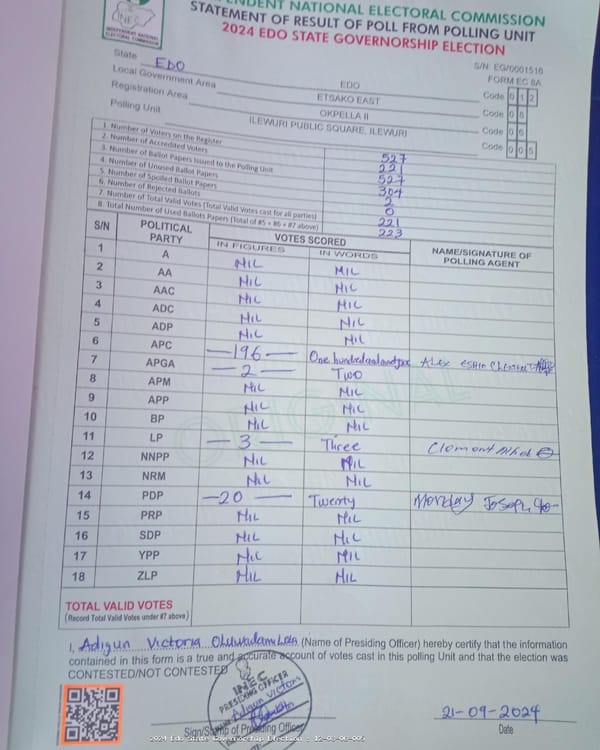 INDEPENDENT NATIONAL ELECTORAL COMMISSION
STATEMENT OF RESULT OF POLL FROM POLLING UNIT
2024 EDO STATE GOVERNORSHIP ELECTION
INEC
INDEPENDENT NATIONAL
ELECTORAL COMMISSION
S/N EG/0001516
FORM EC 8A
State EDO EDO Code 0 1 2
Local Government Area ETSAKO EAST Code 0 8
Registration Area OKPELLA II Code 0 6
Polling Unit ILEWURI PUBLIC SQUARE, ILEWURI Code 0 0 5
1. Number of Voters on the Register 527
2. Number of Accredited Voters 221
3. Number of Ballot Papers Issued to the Polling Unit 527
4. Number of Unused Ballot Papers 304
5. Number of Spoiled Ballot Papers 2
6. Number of Rejected Ballots 0
7. Number of Total Valid Votes (Total Valid Votes cast for all parties) 221
8. Total Number of Used Ballots Papers (Total of #5 + #6 + #7 above) 223
S/N POLITICAL PARTY VOTES SCORED NAME/SIGNATURE OF POLLING AGENT
IN FIGURES IN WORDS
1 A NIL NIL
2 AA NIL NIL
3 AAC NIL NIL
4 ADC NIL NIL
5 ADP NIL NIL
6 APC —196— One hundred Alex
7 APGA —2— Two
8 APM NIL NIL
9 APP NIL NIL
10 BP NIL NIL
11 LP —3— Three Clement
12 NNPP NIL NIL
13 NRM NIL NIL
14 PDP —20— Twenty Monday Joseph
15 PRP NIL NIL
16 SDP NIL NIL
17 YPP NIL NIL
18 ZLP NIL NIL
ORIGINAL
TOTAL VALID VOTES
(Record Total Valid Votes under #7 above)
I, Adigun Victoria Oluwadamilola (Name of Presiding Officer) hereby certify that the information
contained in this form is a true and accurate account of votes cast in this polling Unit and that the election was
CONTESTED/NOT CONTESTED
INEC
PRESIDING OFFICER
Adigun Victoria
21-09-2024
Sign/Stamp of Presiding Officer Date
2024 Edo State Governorship Election - 12-08-06-005